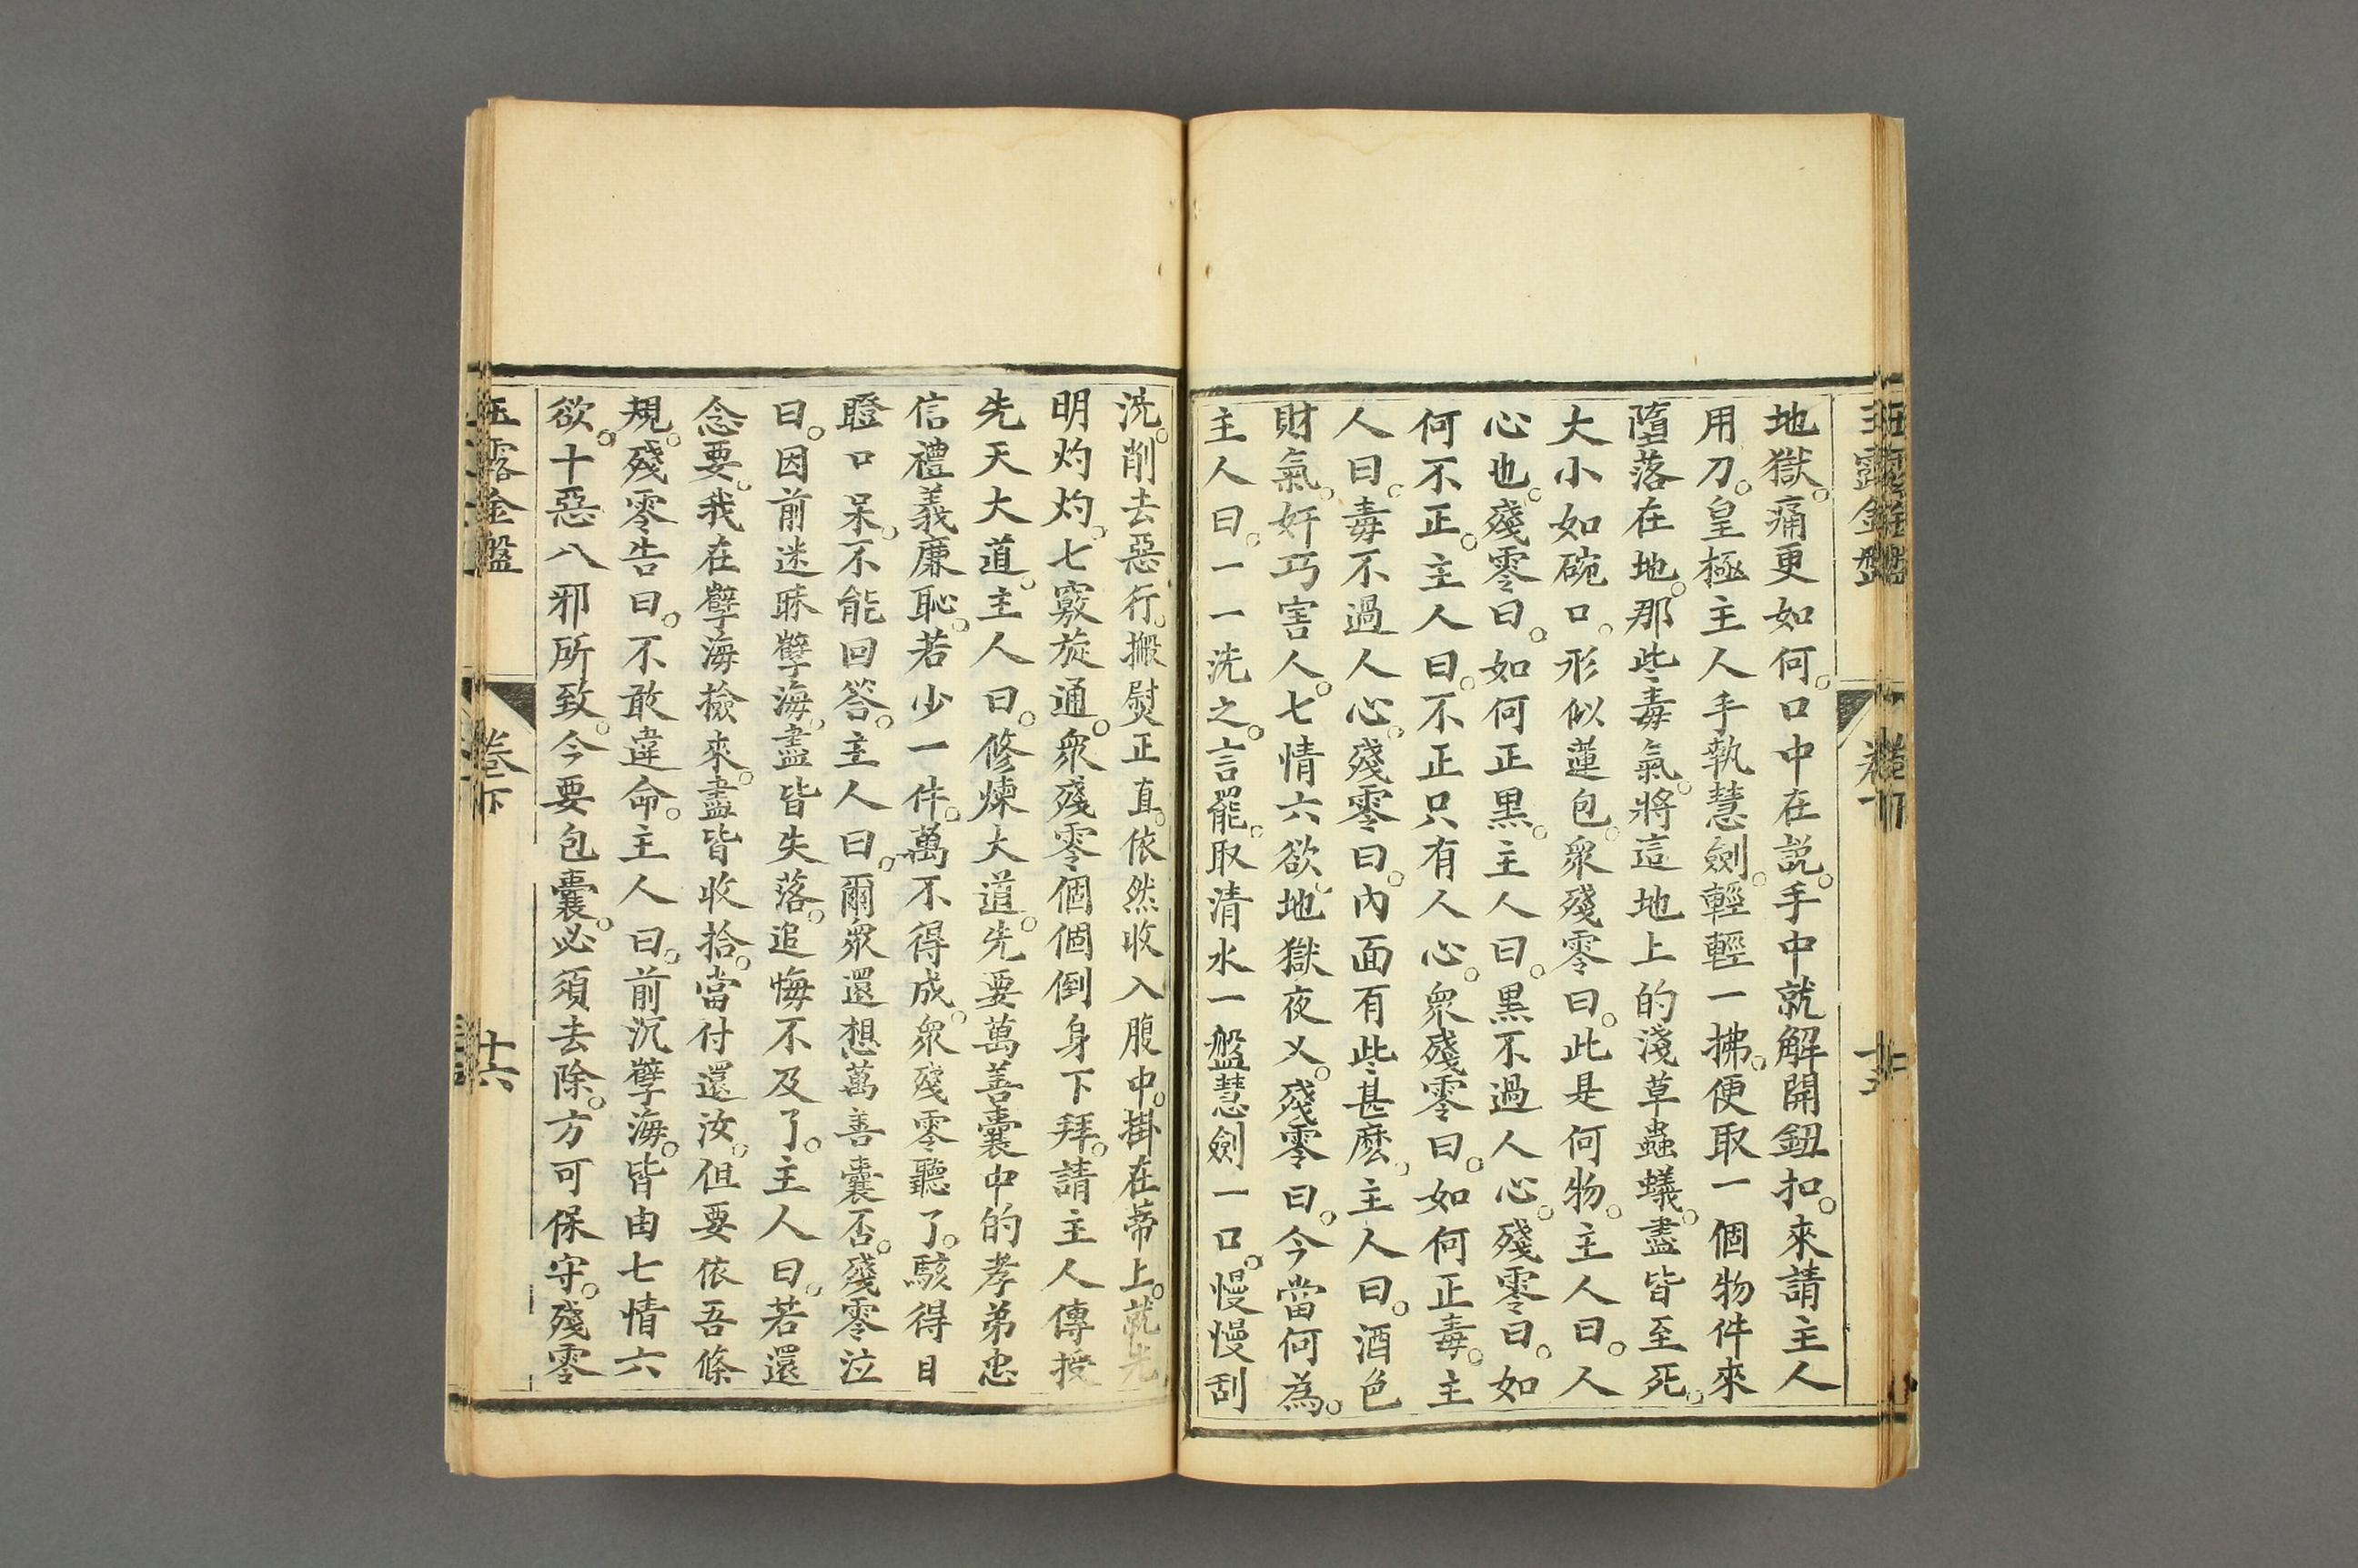 玉露金盤
卷下
地獄。痛更如何。口中在說。手中就解開鈕扣。來請主人
用刀。皇極主人手執慧劍。輕輕一拂。便取一個物件來
墮落在地。那些毒氣。將這地上的淺草蟲蟻。盡皆至死。
大小如碗口。形似蓮包。眾殘零曰。此是何物。主人曰。人
心也。殘零曰。如何正黑。主人曰。黑不過人心。殘零曰。如
何不正。主人曰。不正只有人心。眾殘零曰。如何正毒。主
人曰。毒不過人心。殘零曰。內面有些甚麼。主人曰。酒色
財氣。奸巧害人。七情六欲。地獄夜乂。殘零曰。今當何為。
主人曰。一一洗之。言罷。取清水一盤慧劍一口。慢慢刮
洗。削去惡行。搬熨正直。依然收入腹中。掛在蒂上。就先
明灼灼。七竅旋通。眾殘零個個倒身下拜。請主人傳授
先天大道。主人曰。修煉大道。先要萬善囊中的孝弟忠
信禮義廉恥。若少一件。萬不得成。眾殘零聽了。駭得目
瞪口呆。不能回答。主人曰。爾眾還想萬善囊否。殘零泣
曰。因前迷昧孽海。盡皆失落。追悔不及了。主人曰。若還
念要。我在孽海撿來。盡皆收拾。當付還汝。但要依吾條
規。殘零告曰。不敢違命。主人曰。前沉孽海。皆由七情六
欲。十惡八邪所致。今要包囊。必須去除。方可保守。殘零
玉露金盤
卷下
十六